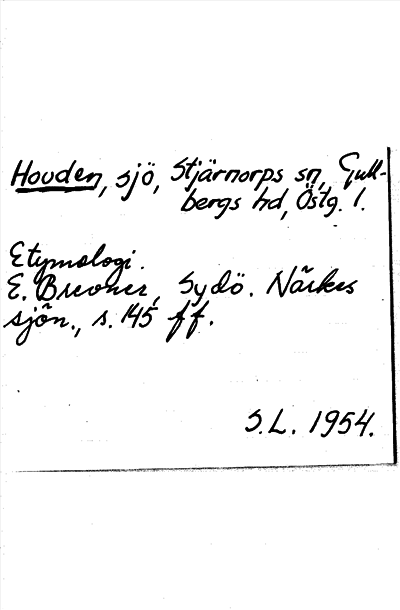 Hovden, sjö, Stjärnorps sn, Gull-
bergs hd, Östg. l.
Etymologi.
E. Brevner, Sydö. Närkes
sjön., s. 145 ff.
S.L. 1954.